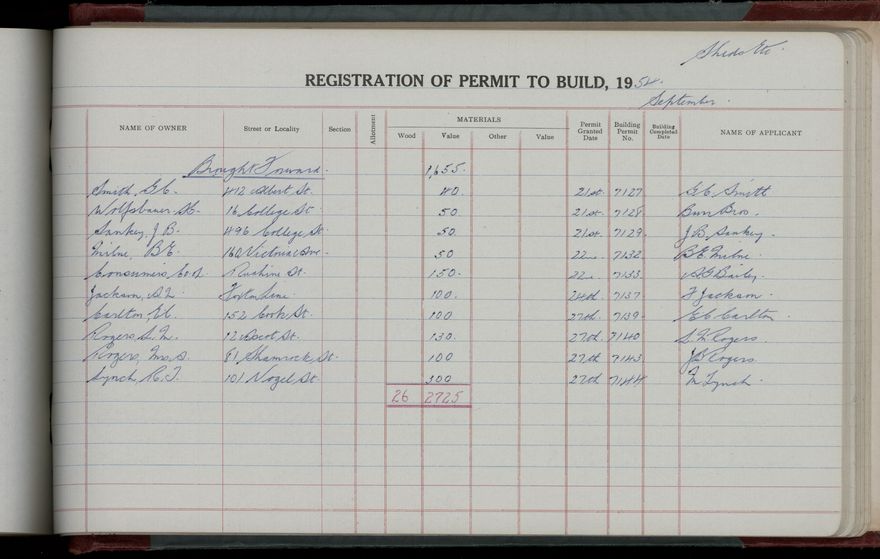 Sheds Etc.
REGISTRATION OF PERMIT TO BUILD, 1954.
September.
NAME OF OWNER Street or Locality Section Allotment MATERIALS Wood Value Other Value Permit Granted Date Building Permit No. Building Completed Date NAME OF APPLICANT
Brought Forward. 1,655.
Smith, G.C. 412 Albert St. 40. 21st. 7127 G.C. Smith
16 College St. 50. 21st. 7128 Bunn Bros.
Sankey, J B. 496 College St. 50. 21st. 7129. J B. Sankey.
Milne, B E. 160 Victoria Ave. 50 22. 7132. B.E. Milne.
Consumers, Co op Ruahine St. 150. 22. 7133. Bailey.
Jackson, Lane. 100. 24th. 7137. F Jackson.
Carlton, E.C. 152 Cook St. 100 27th. 7139. E C Carlton.
Rogers, L. M. 12 Ascot St. 130. 27th. 7140 L M Rogers.
Rogers, Mrs. 81 Shamrock St. 100 27th 7143. Rogers.
Lynch, R. J. 101 Vogel St. 300 27th 7144 M Lynch.
26 2725